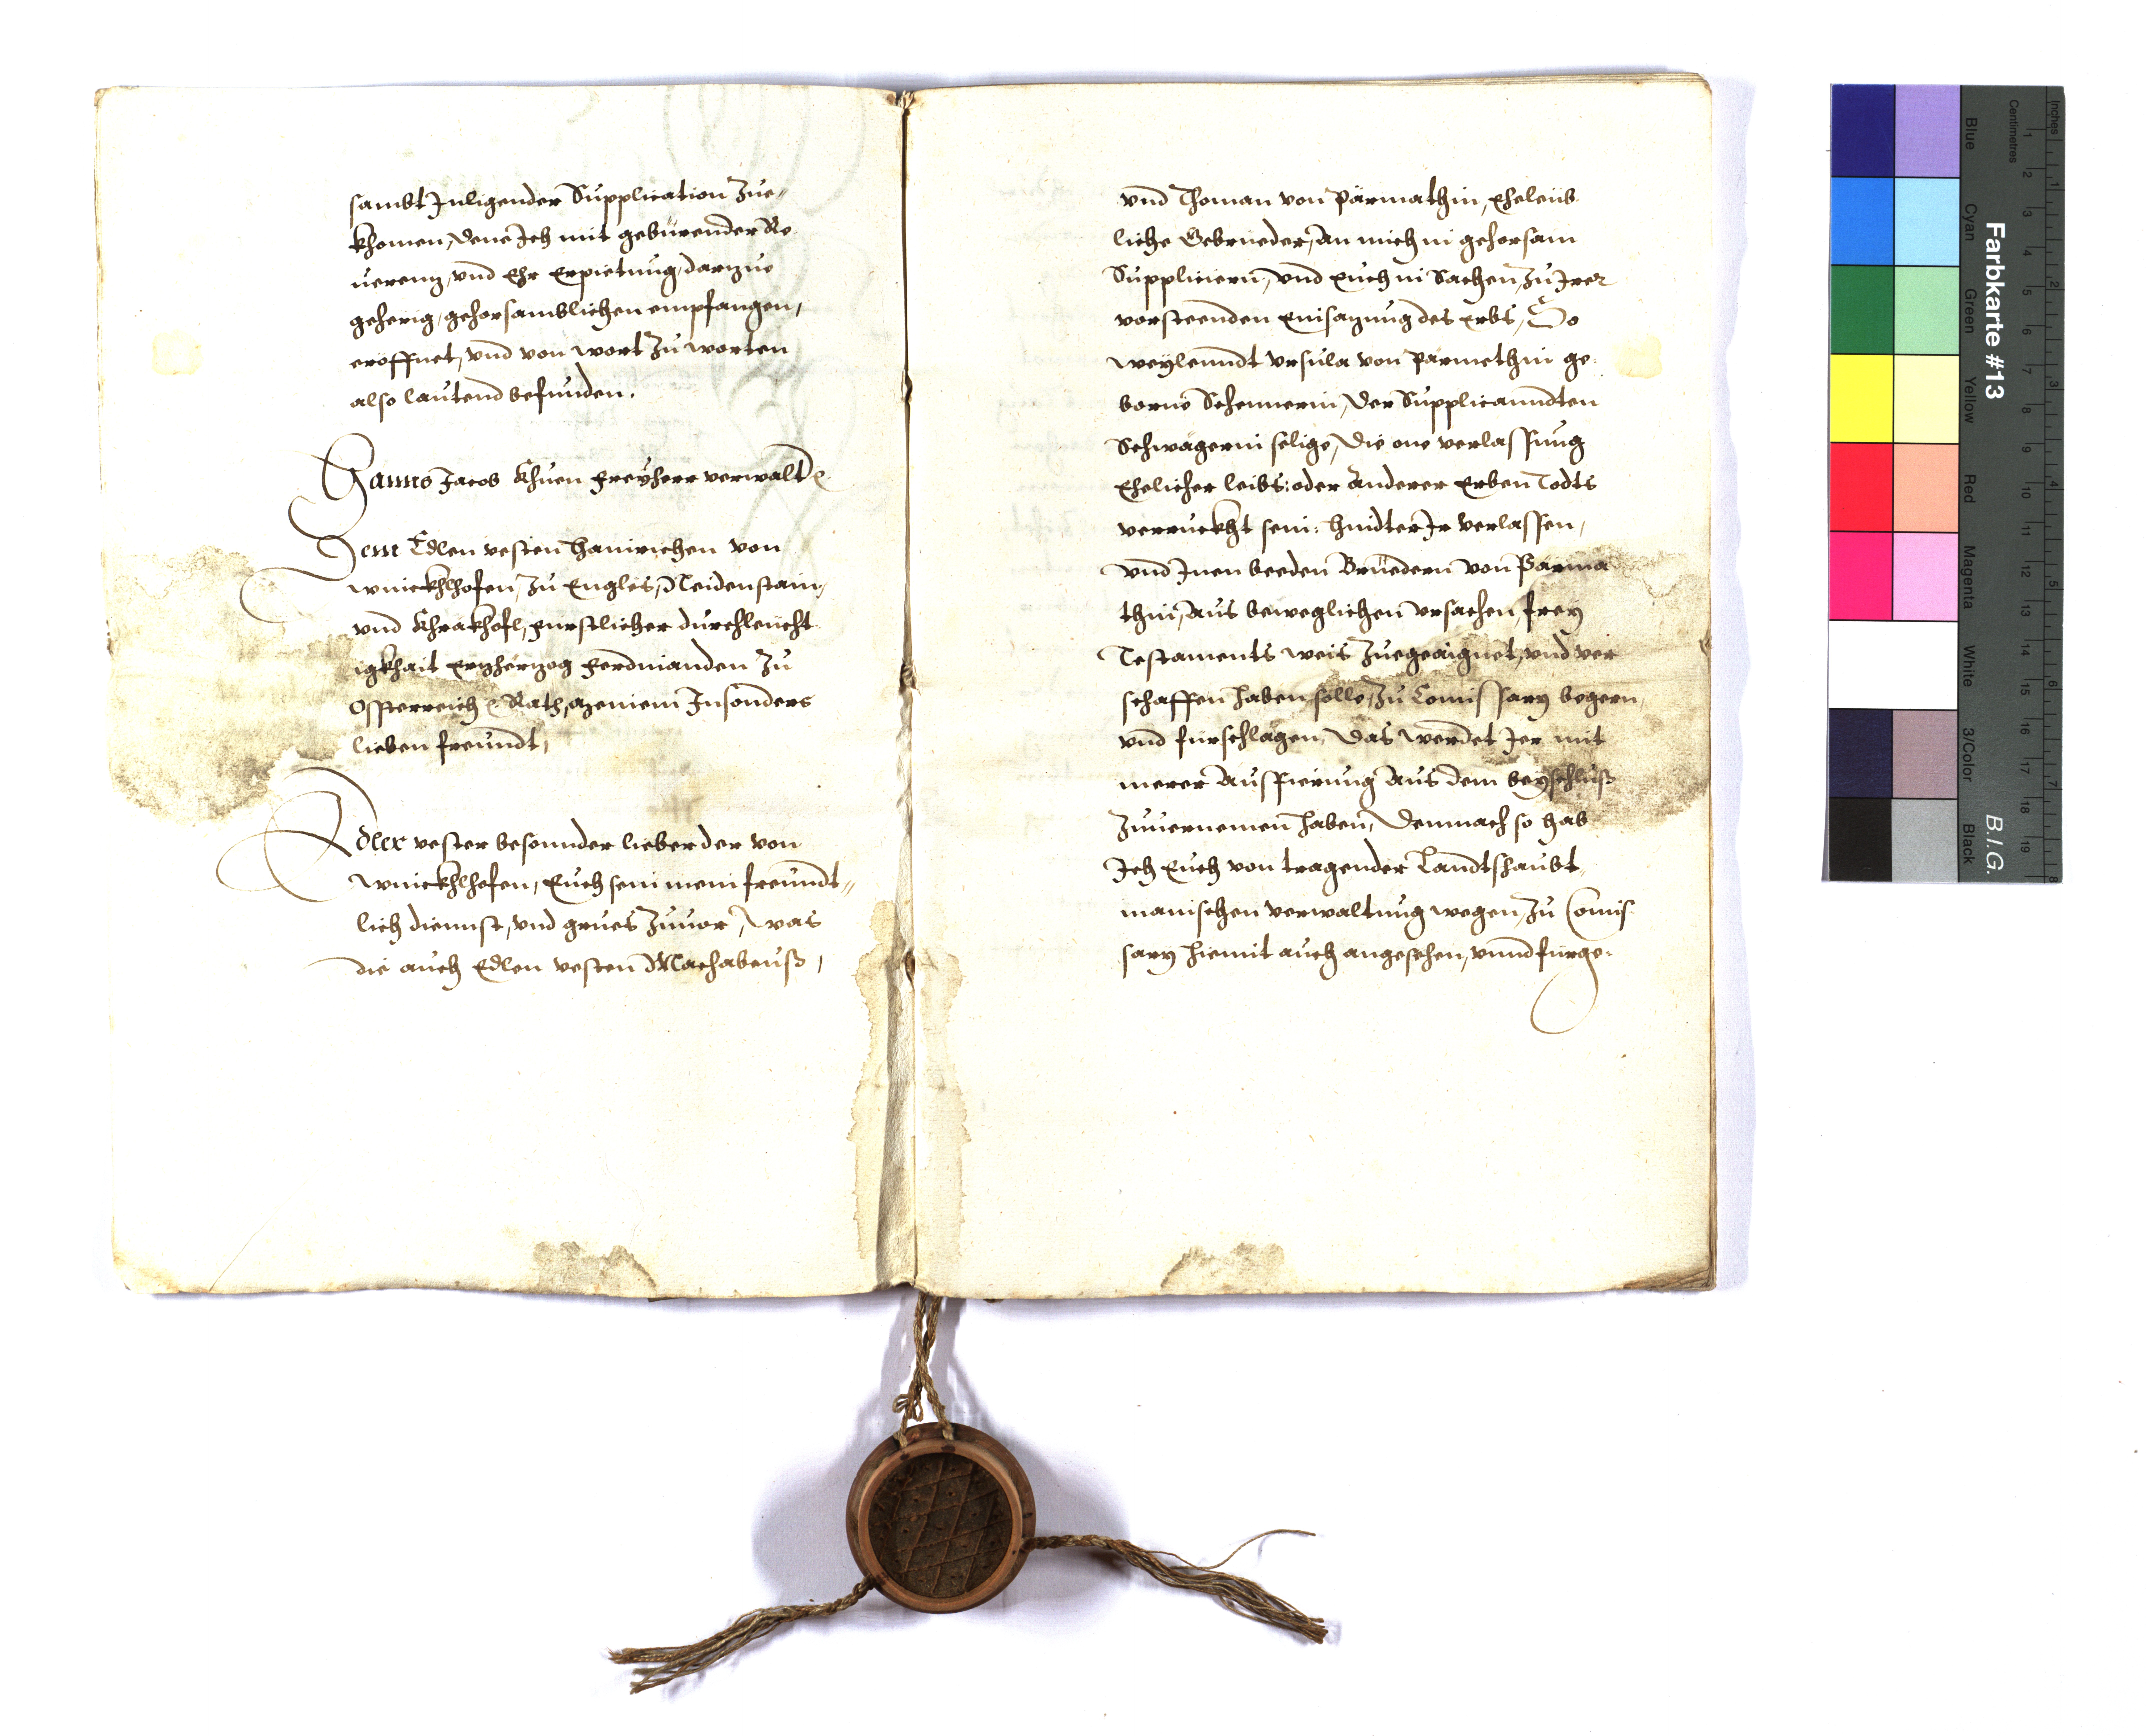 sambt Inligender Supplication Zue-
khomen, dene Ich mit gebürender Re
uerenz, vnd Ehr Erpietung, darzue
geherig, gehorsamblichen empfangen,
eröffnet, vnd von wort zu worten
also lautend befunden.
Hanns Jacob Khuen Freyherr verwalt
Dem Edlen vesten Hainrichen von
Winckhlhofen, zu Engles, Neidenstain,
vnd Khrakhofl, Fürstlicher durchleücht
igkhait Erzherzog Ferdinanden zu
Össterreich Rath, meinem Insonders
lieben freundt,
Edler vester besonnder lieber der von
Winckhlhofen, Euch sein mein freundt-
lich diennst, vnd grues zuuor, was
die auch Edlen vesten Machabeuß,
vnd Thoman von Pärmathin, Eheleib
liche Gebrueder, an mich in gehorsam
Suppliciern, vnd Euch in Sachen, zu Irer
vorsteenden Einsazung des Erbs, So
weylenndt Vrsula von Pärmethin ge
borne Schennerin, der Supplicanndten
Schwägerin selige, die one verlassung
Ehelicher leibs: oder anderer Erben Todts
verruckht sein: hindter Ir verlassen,
vnd Inen beeden Brüedern von Pärma
thin, aus beweglichen vrsachen, frey
Testaments weis zuegeaignet, vnd ver
schaffen haben solle, zu Comissary begern,
vnd fürschlagen, das werdet Ier mit
merer Ausfierung aus dem beyschluß
zuuernemen haben, demnach so hab
Ich Euch von tragender Landtshaubt
manischen verwaltung wegen, zu Comis
sary hiemit auch angesehen, vnnd fürge-
Farbkarte #13
B.I.G.
Blue
Cyan
Green
Yellow
Red
Magenta
White
3/Color
Black
Centimetres
Inches
1 2 3 4 5 6 7 8 9 10 11 12 13 14 15 16 17 18 19
1 2 3 4 5 6 7 8